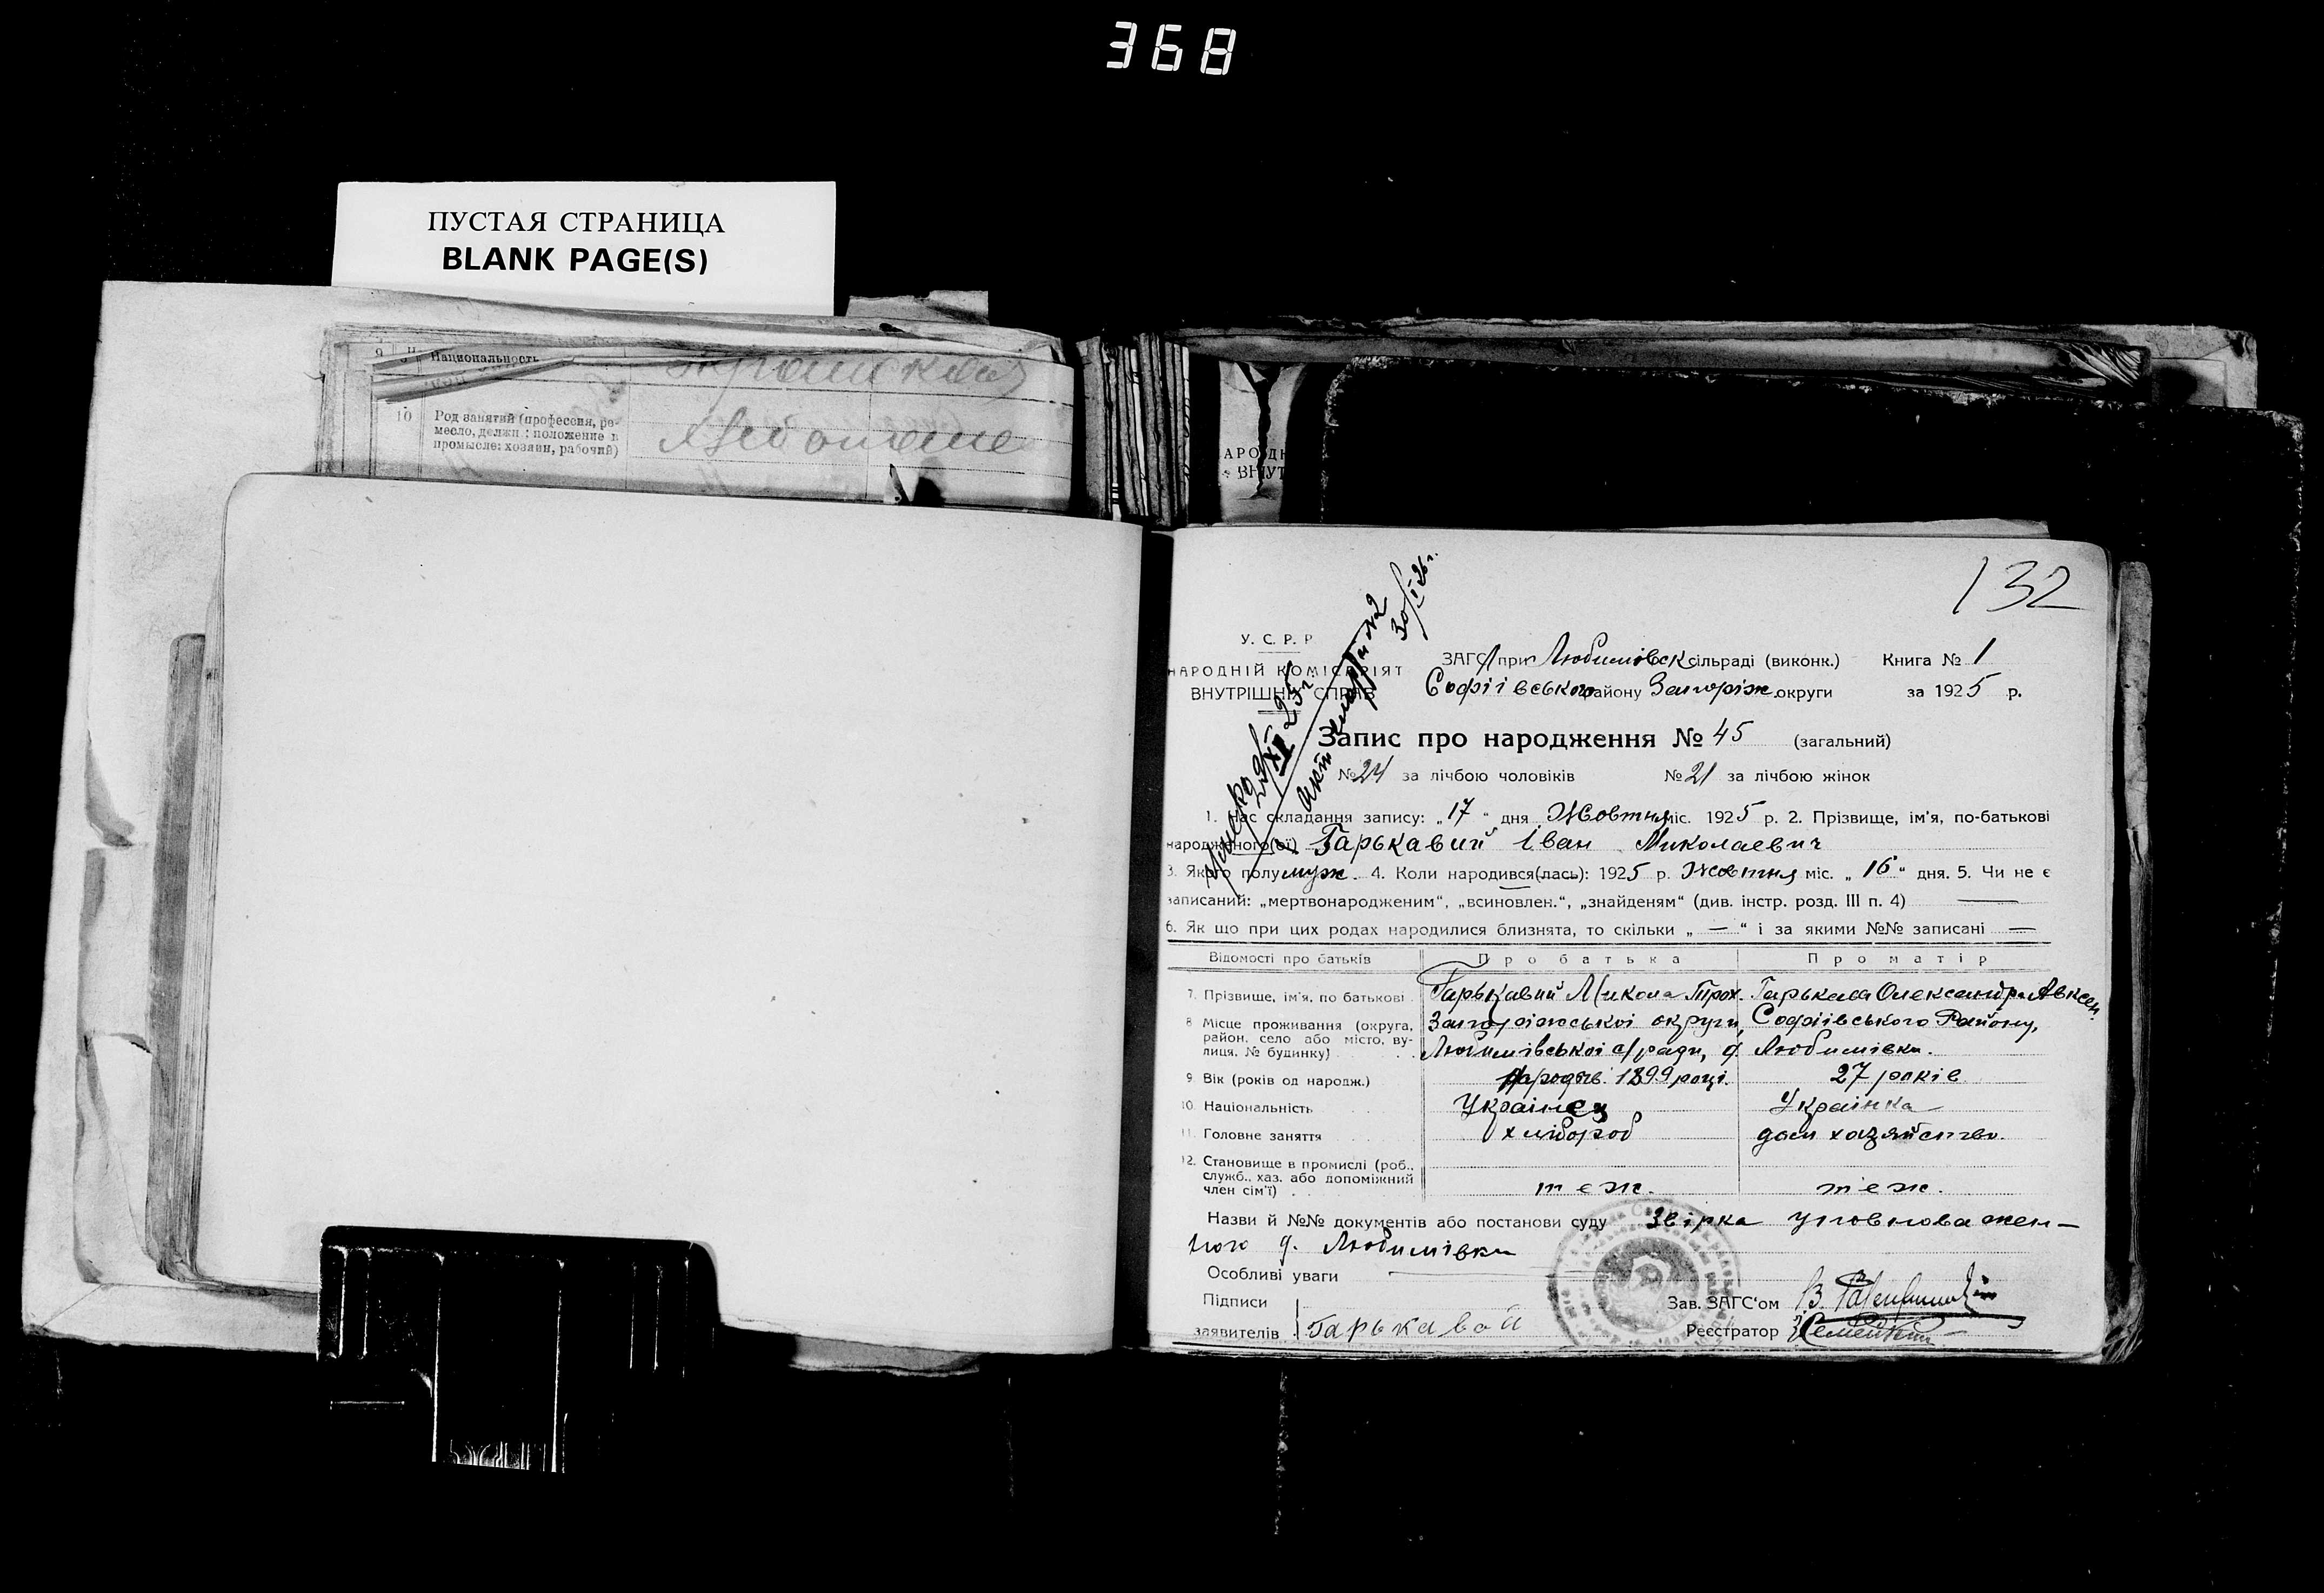 368
ПУСТАЯ СТРАНИЦА
BLANK PAGE(S)
9 Национальность
10 Род занятий (профессия, ре-
месло, должн.; положение в
промысле: хозяин, рабочий)
132
У. С. Р. Р
НАРОДНІЙ КОМІСАРІЯТ
ВНУТРІШНІХ СПРАВ
ЗАГС при Любимівск сільраді (виконк.) Книга № 1
Софіівського району Запоріж. округи за 1925 р.
акт смерти №2
30/I 26 г.
Запис про народження № 45 (загальний)
№ 24 за лічбою чоловіків № 21 за лічбою жінок
1. Час складання запису: „17" дня Жовтня міс. 1925 р. 2. Прізвище, ім'я, по-батькові
народженого(ої) Гарькавий Іван Миколаевич
3. Якого полу муж. 4. Коли народився(лась): 1925 р. Жовтня міс. „16" дня. 5. Чи не є
записаний: „мертвонародженим", „всиновлен.", „знайденям" (див. інстр. розд. III п. 4) —
6. Як що при цих родах народилися близнята, то скільки „ — " і за якими №№ записані —
Відомості про батьків Про батька Про матір
7. Прізвище, ім'я, по батькові Гарькавий Микола Трох. Гарькава Олександра Авксен.
8 Місце проживання (округа, Запоріжськоі округи, Софіівського Району,
район, село або місто, ву-
лиця, № будинку) Любимівськоі с/ради, д. Любимівки.
9. Вік (років од народж.) народив. 1899 році. 27 років
10. Національність Украінец Украінка
11. Головне заняття хлібороб дом хазяйство.
12. Становище в промислі (роб.,
служб., хаз. або допоміжний
член сім'ї) теж. теж.
Назви й №№ документів або постанови суду Звірка уповноважен-
ного д. Любимівки
Особливі уваги
Підписи Зав. ЗАГС'ом
заявителів Гарькавой Реєстратор